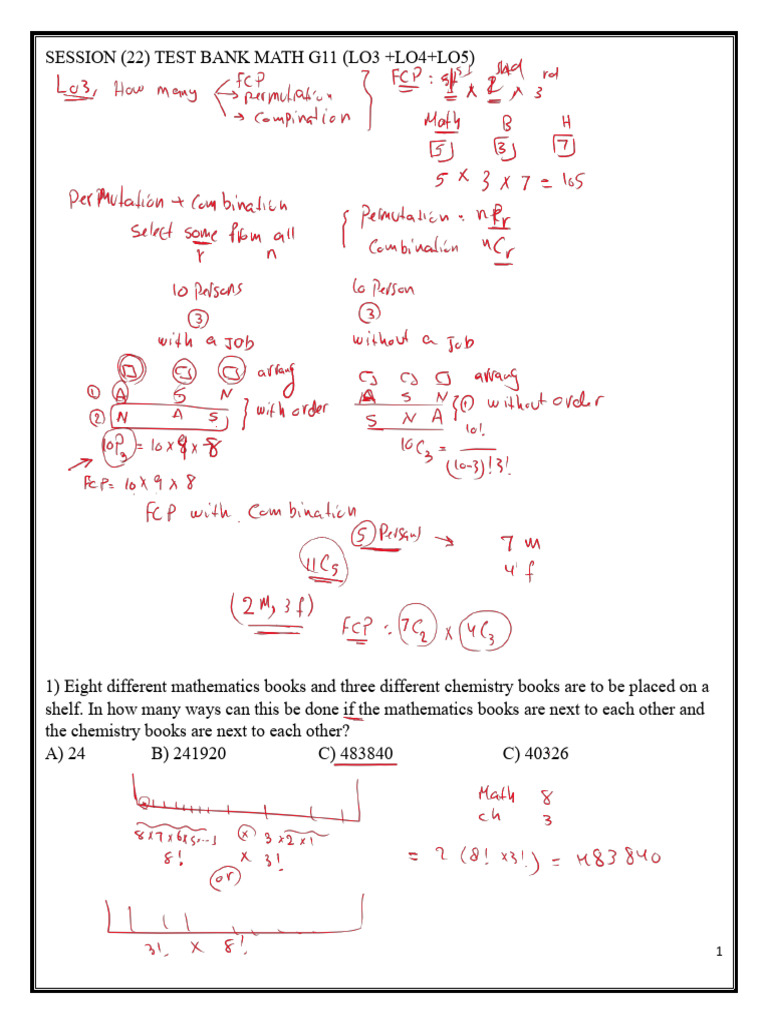 SESSION (22) TEST BANK MATH G11 (LO3 +LO4+LO5)
Lo3, How many
FCP
→ permutation
→ Compination
FCP : 1st × 2nd × 3 rd
Math B H
5 3 7
5 × 3 × 7 = 105
PerMutation + Combination
Select some from all
r n
Permutation = nPr
Combination nCr
10 Persons
3
with a JOB
arrang
① A S N
② N A S
with order
10P3 = 10 × 9 × 8
FCP = 10 × 9 × 8
10 Person
3
without a Job
arrang
A S N
S N A
① without order
10C3 = 10! / (10-3)! 3!
FCP with Combination
5 Persons → 7 m
4 f
11C5
(2 M, 3 f)
FCP = 7C2 × 4C3
1) Eight different mathematics books and three different chemistry books are to be placed on a
shelf. In how many ways can this be done if the mathematics books are next to each other and
the chemistry books are next to each other?
A) 24 B) 241920 C) 483840 C) 40326
8×7×6×5,...) × 3×2×1
8! × 3!
or
3! × 8!
Math 8
ch 3
= 2 (8! × 3!) = 483840
1